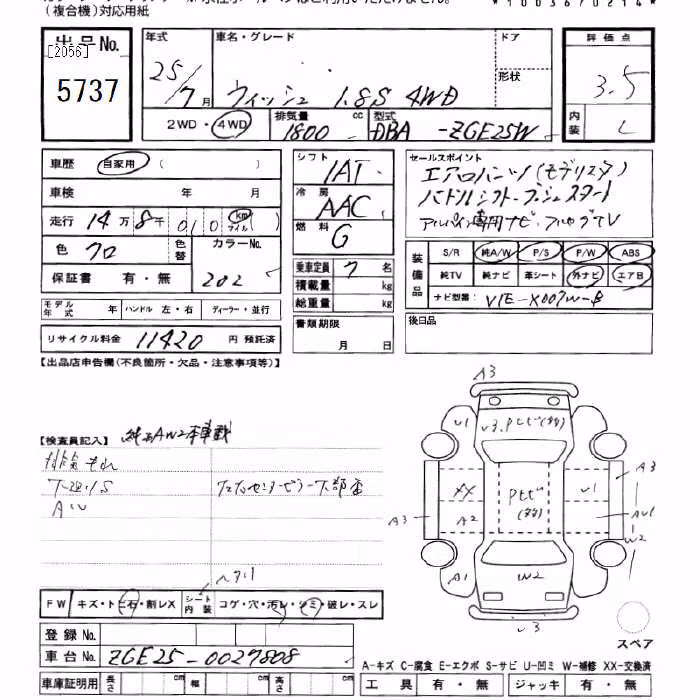 (複合機)対応用紙
出品No.
[2056]
5737
年式
25/7月
車名・グレード
ウィッシュ 1.8S 4WD
ドア
形状
2WD・4WD
排気量 1800 cc
型式 DBA -ZGE25W
評価点
3.5
内装
C
車歴 自家用 ( )
車検 年 月
走行 14万8千010 km マイル
色 クロ 色替 カラーNo. 202
保証書 有・無
モデル年式 年 ハンドル 左・右 ディーラー・並行
リサイクル料金 11420 円 預託済
シフト IAT
冷房 AAC
燃料 G
乗車定員 7 名
積載量 kg
総重量 kg
書類期限
月 日
セールスポイント
エアロバンパー(モデリスタ)
パドルシフト・プッシュスタート
アルパイン専用ナビ・フルセグTV
装備品
S/R 純A/W P/S P/W ABS
純TV 純ナビ 革シート 外ナビ エアB
ナビ型番 VIE-X007W-B
後日品
【出品店申告欄(不良箇所・欠品・注意事項等)】
【検査員記入】 純正AW2本車載
排気もれ
下廻りS
AW
A3
U1
U3
Pとび
XX
A2
Pとび
U1
A3
A3
AU1
W2
A1
W2
U3
スペア
FW キズ・トビ石・割レX
シート内装 コゲ・穴・汚レ・シミ・破レ・スレ
登録No.
車台No. ZGE25-0027808
車庫証明用 長さ cm 幅 cm 高さ cm
A-キズ C-腐食 E-エクボ S-サビ U-凹ミ W-補修 XX-交換済
工具 有・無 ジャッキ 有・無